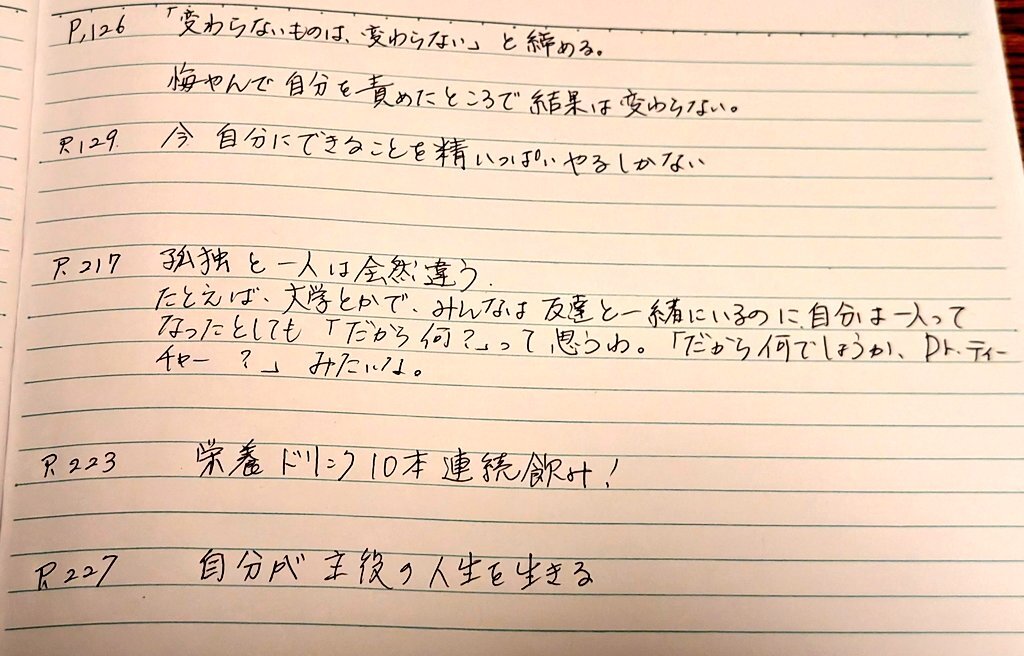 P.126 「変わらないものは、変わらない」と締める。
悔やんで自分を責めたところで結果は変わらない。
P.129. 今 自分にできることを精いっぱいやるしかない
P.217 孤独と一人は全然違う.
たとえば、大学とかで、みんなは友達と一緒にいるのに自分は一人って
なったとしても「だから何?」って思うわ。「だから何でしょうか、Dr.ティー
チャー?」みたいな。
P.223 栄養ドリンク10本連続飲み!
P.227 自分が主役の人生を生きる